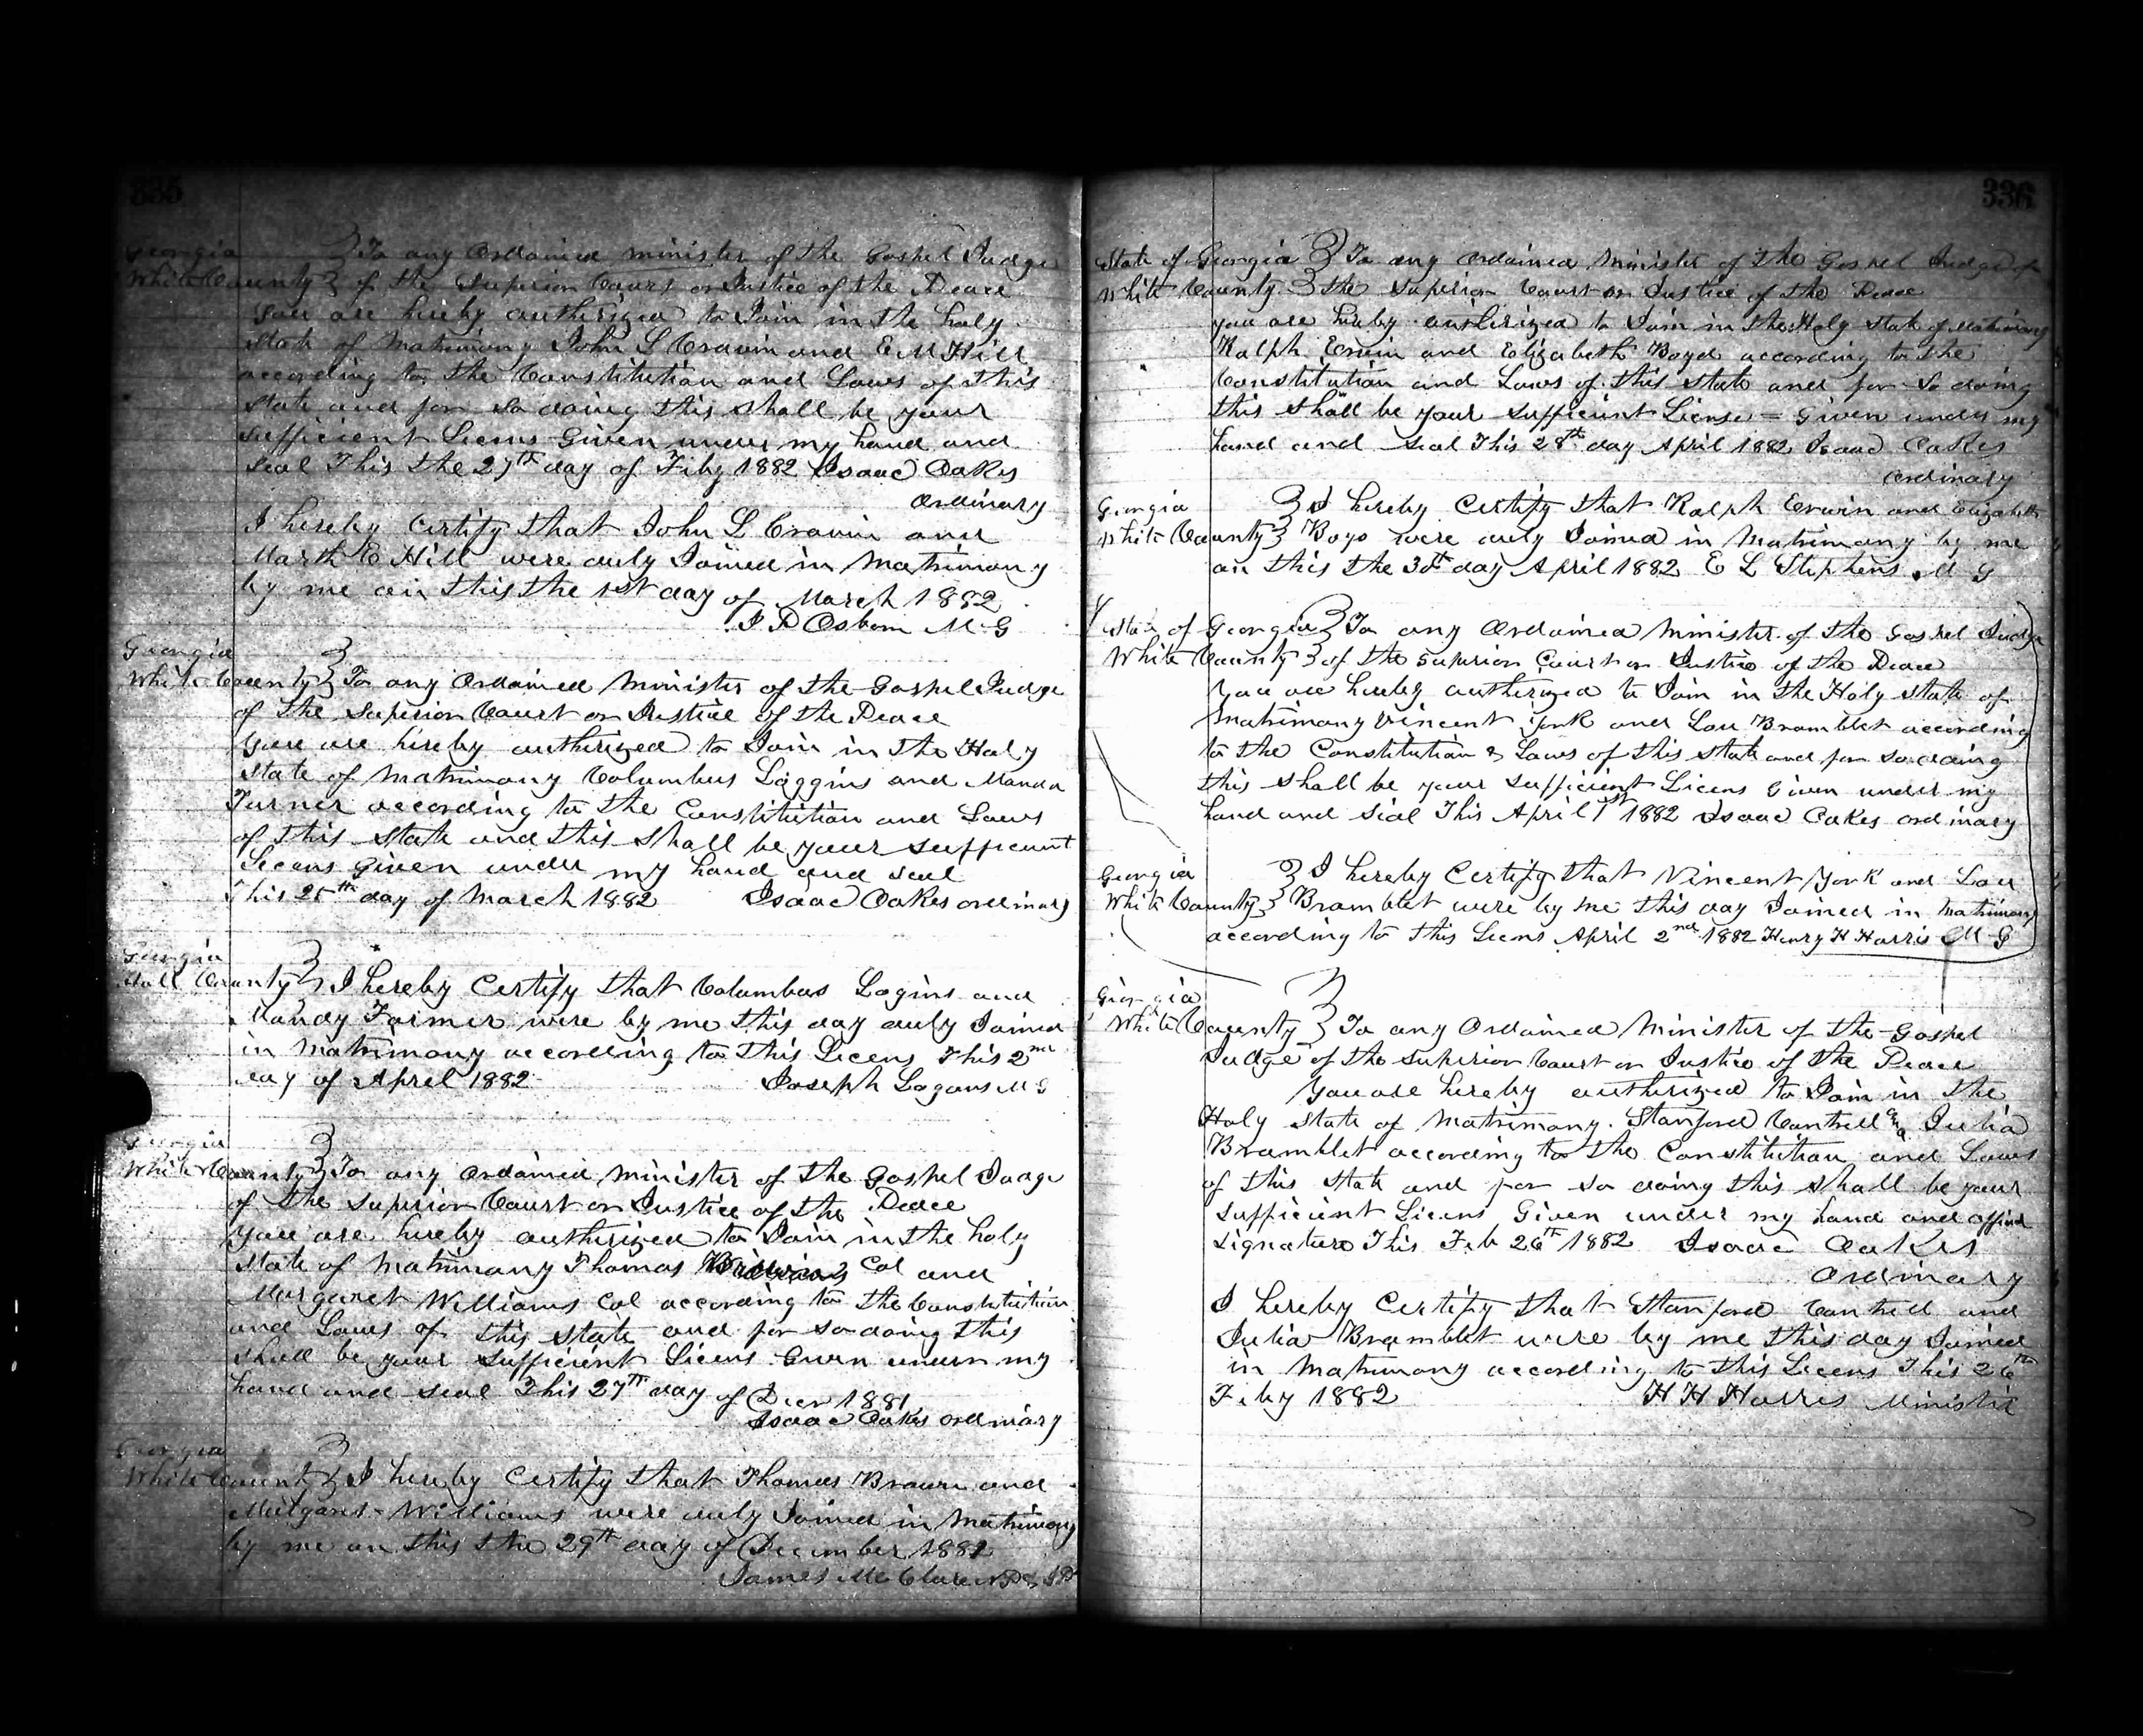 335
Georgia } To any Ordained minister of the Gospel Judge
White County } of the Superior Court or Justice of the Peace
you are hereby authirized to Join in the holy
State of Matrimony John L Cravin and E M Hill
according to the Constitution and Laws of this
State and for so doing this shall be your
sufficient Licens Given under my hand and
seal This the 27th day of Feby 1882 Isaac Oakes
Ordinary
I hereby Certify that John L Cravin and
Marth E Hill were duly Joined in Matrimony
by me on this the 1st day of March 1882
J D Osborn M G
Georgia
White County } To any Ordained Minister of the Gospel Judge
of the Superior Court or Justice of the Peace
you are hereby authirized to Join in the Holy
State of Matrimony Columbus Loggins and Manda
Turner according to the Constitution and Laws
of this State and this shall be your sufficient
Licens Given under my hand and seal
This 25th day of March 1882 Isaac Oakes ordinary
Georgia
Hall County } I hereby Certify that Columbus Logins and
Mandy Farmer were by me this day duly Joined
in Matrimony according to this Licens This 2nd
day of April 1882 Joseph Logans M G
Georgia
White County } To any Ordained Minister of the Gospel Judge
of the Superior Court or Justice of the Peace
you are hereby authirized to Join in the holy
State of Matrimony Thomas Col and
Margaret Williams Col according to the Constitution
and Laws of this State and for so doing this
shall be your sufficient Licens Given under my
hand and seal This 27th day of Decr 1881
Isaac Oakes ordinary
Georgia
White County } I hereby Certify that Thomas Brown and
Williams were duly Joined in Matrimony
by me on this the 29th day of December 1881
James Mc Clure
336
State of Georgia } To any ordained Minister of the Gospel Judge of
White County } the Superior Court or Justice of the Peace
you are hereby authirized to Join in the Holy State of Matrimony
Ralph Erwin and Elizabeth Boyd according to the
Constitution and Laws of this State and for so doing
this shall be your sufficient License = Given under my
hand and seal This 28th day April 1882 Isaac Oakes
ordinary
Georgia } I hereby Certify that Ralph Erwin and Elizabeth
White County } Boyd were duly Joined in Matrimony by me
on this the 30th day April 1882 E L Stephens M G
State of Georgia } To any Ordained Minister of the Gospel Judge
White County } of the Superior Court or Justice of the Peace
you are hereby authirized to Join in the Holy State of
Matrimony Vincent York and Lou Bramblet according
to the Constitution & Laws of this State and for so doing
this shall be your sufficient Licens Given under my
hand and seal This April 1st 1882 Isaac Oakes ordinary
Georgia } I hereby Certify that Vincent York and Lou
White County } Bramblet were by me this day Joined in Matrimony
according to this Licens April 2nd 1882 Henry H Harris M G
Georgia
White County } To any Ordained Minister of the Gospel
Judge of the Superior Court or Justice of the Peace
You are hereby authirized to Join in the
Holy State of Matrimony Stanford Cantrell and Julia
Bramblet according to the Constitution and Laws
of this State and for so doing this shall be your
sufficient Licens Given under my hand and official
signature This Feb 26th 1882 Isaac Oakes
Ordinary
I hereby Certify that Stanford Cantrell and
Julia Bramblet were by me this day Joined
in Matrimony according to this Licens This 26th
Feby 1882 H H Harris Minister